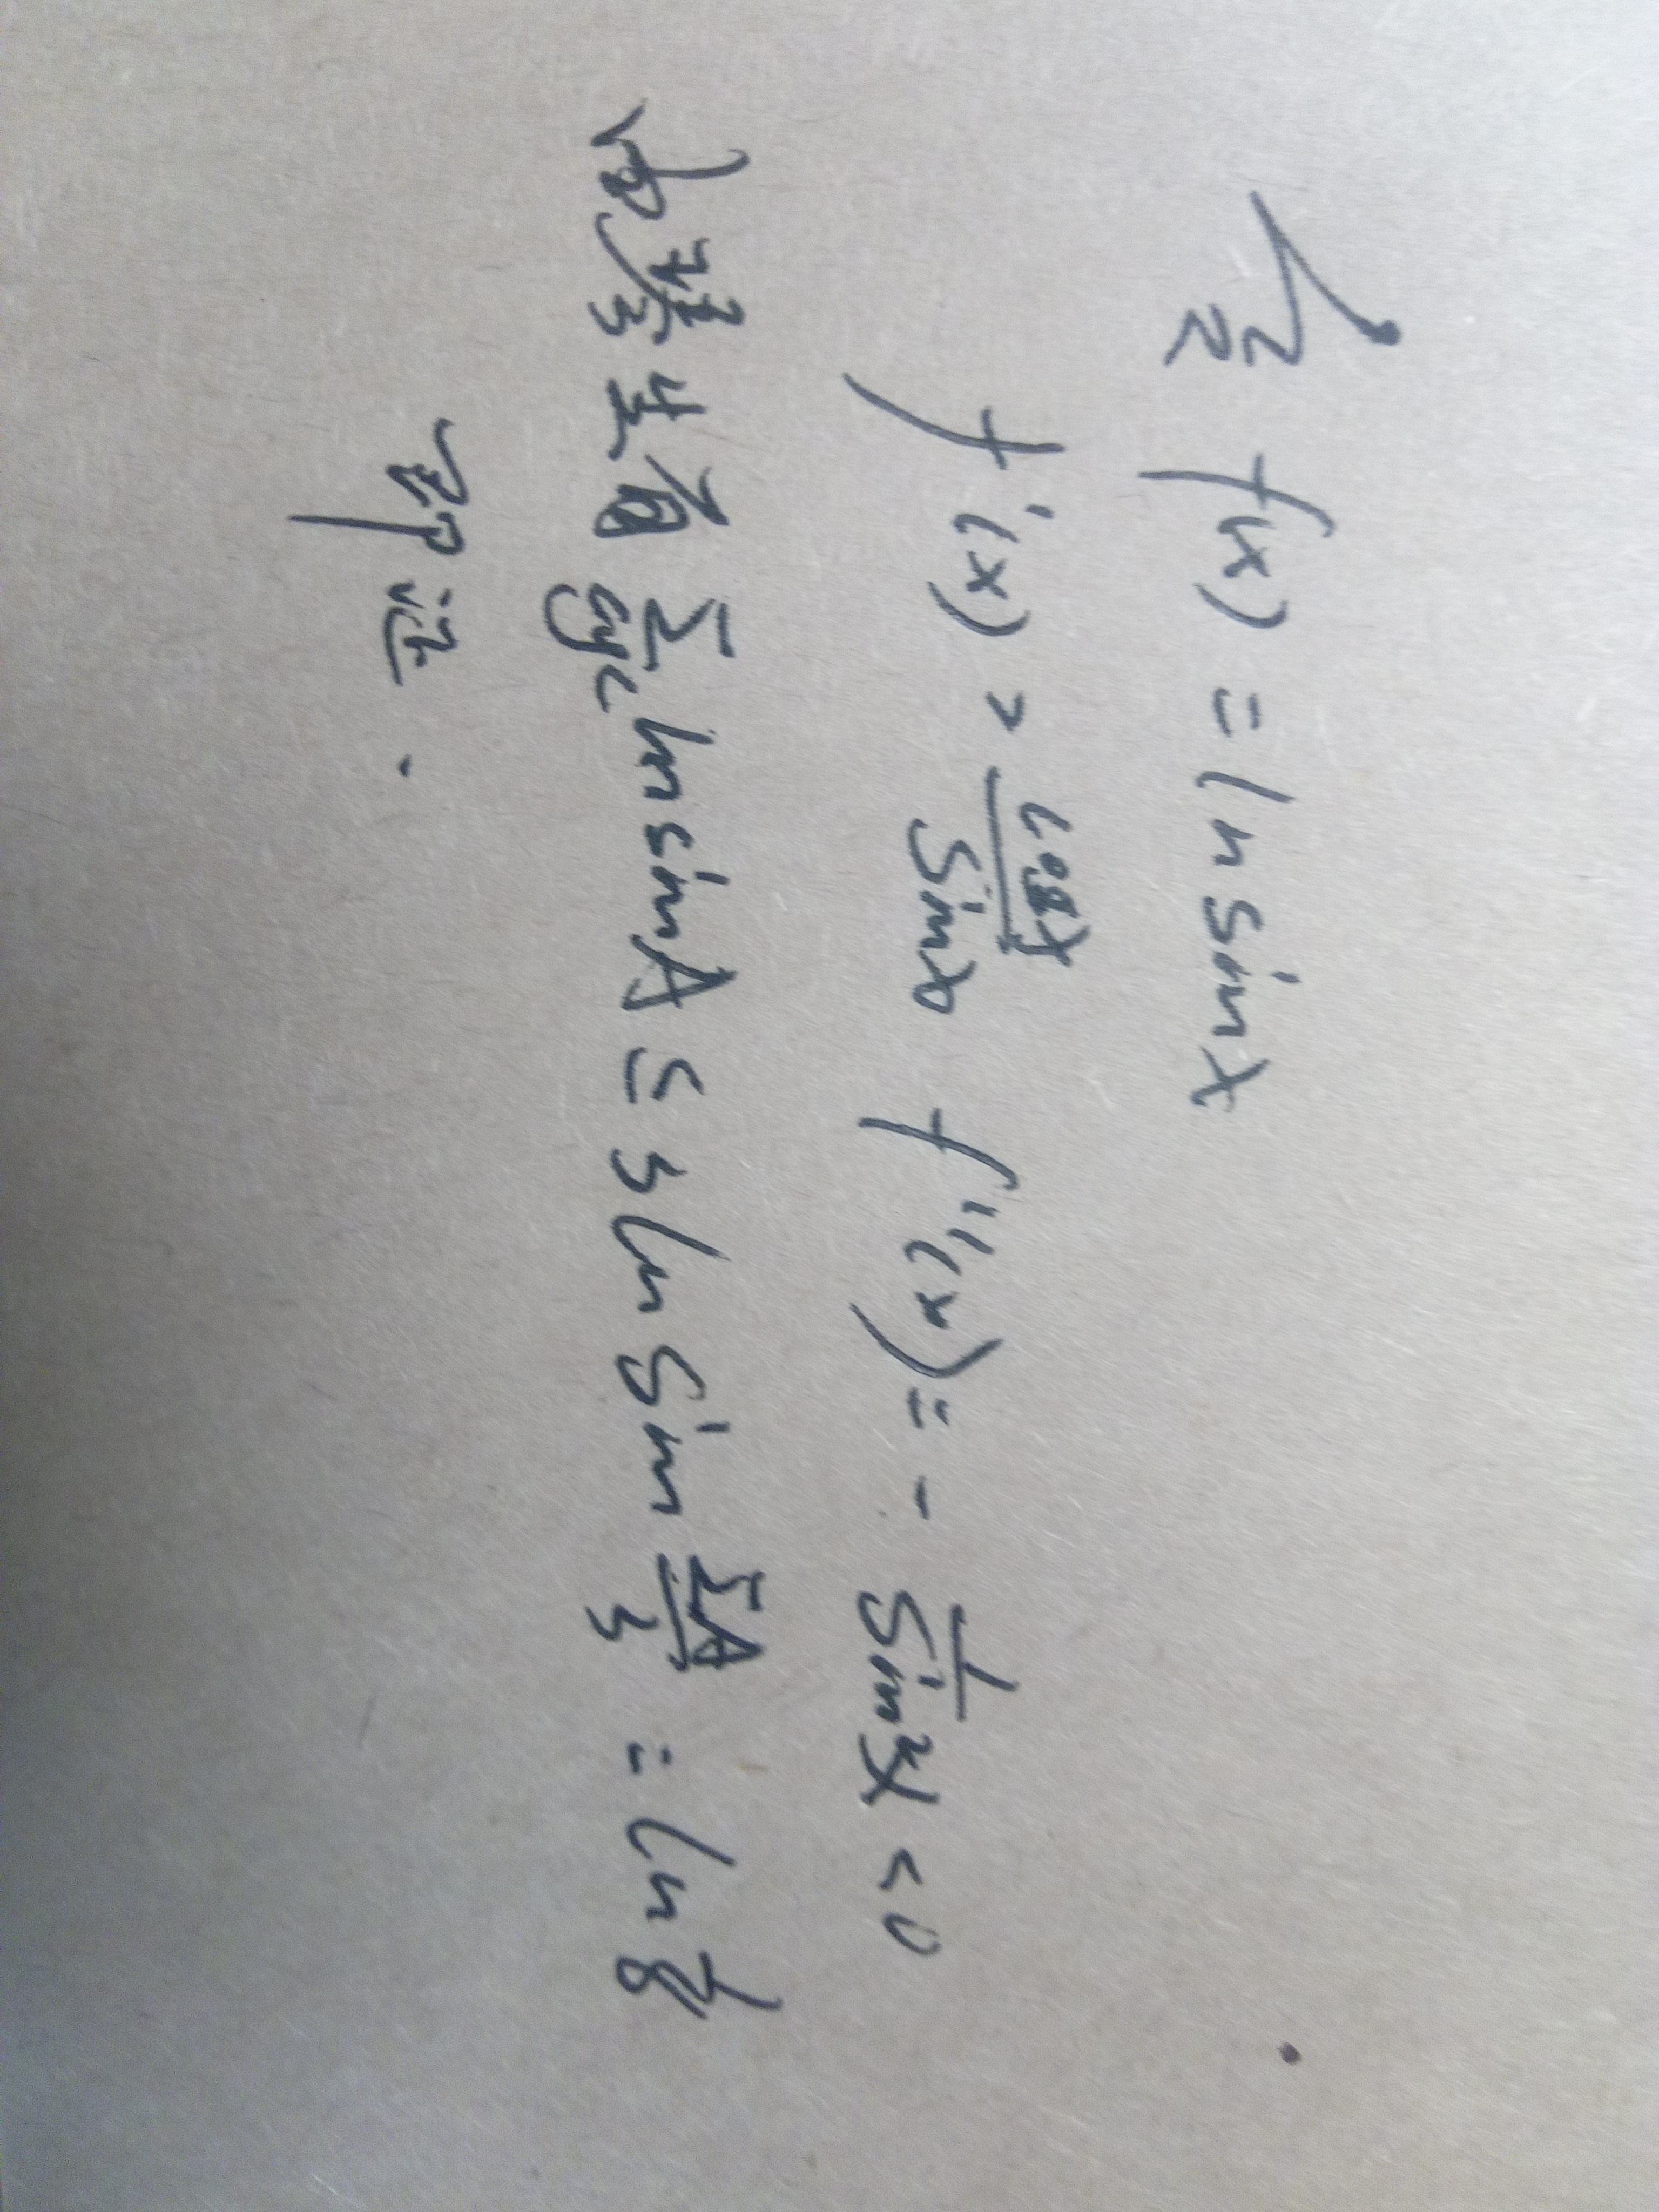 记 f(x) = ln sinx
f'(x) = cosx/sinx f''(x) = - 1/sin²x < 0
由琴生有 ∑cyc ln sinA ≤ 3 ln sin ∑A/3 = ln 1/8
即证.